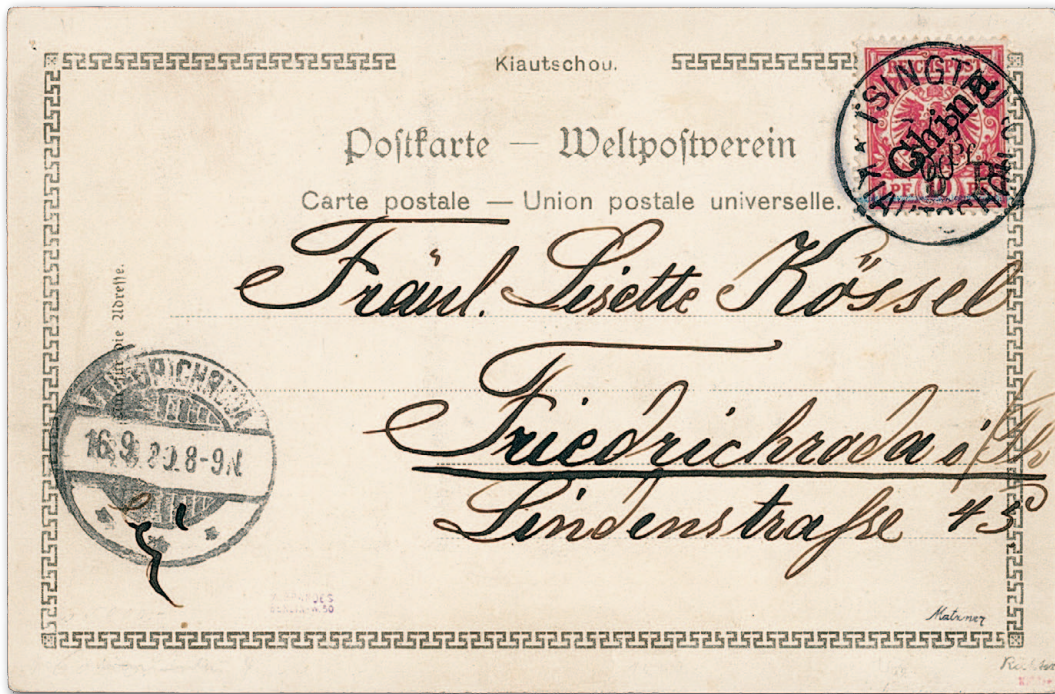 Kiautschou.
Postkarte — Weltpostverein
Carte postale — Union postale universelle.
REICHSPOST
China
TSINGTAU
KIAUTSCHOU
PF 10 PF
Fräul. Lisette Kössel
Friedrichroda i/Th
Lindenstraße 45
die Adresse.
FRIEDRICHRODA
8-9N
Matzner